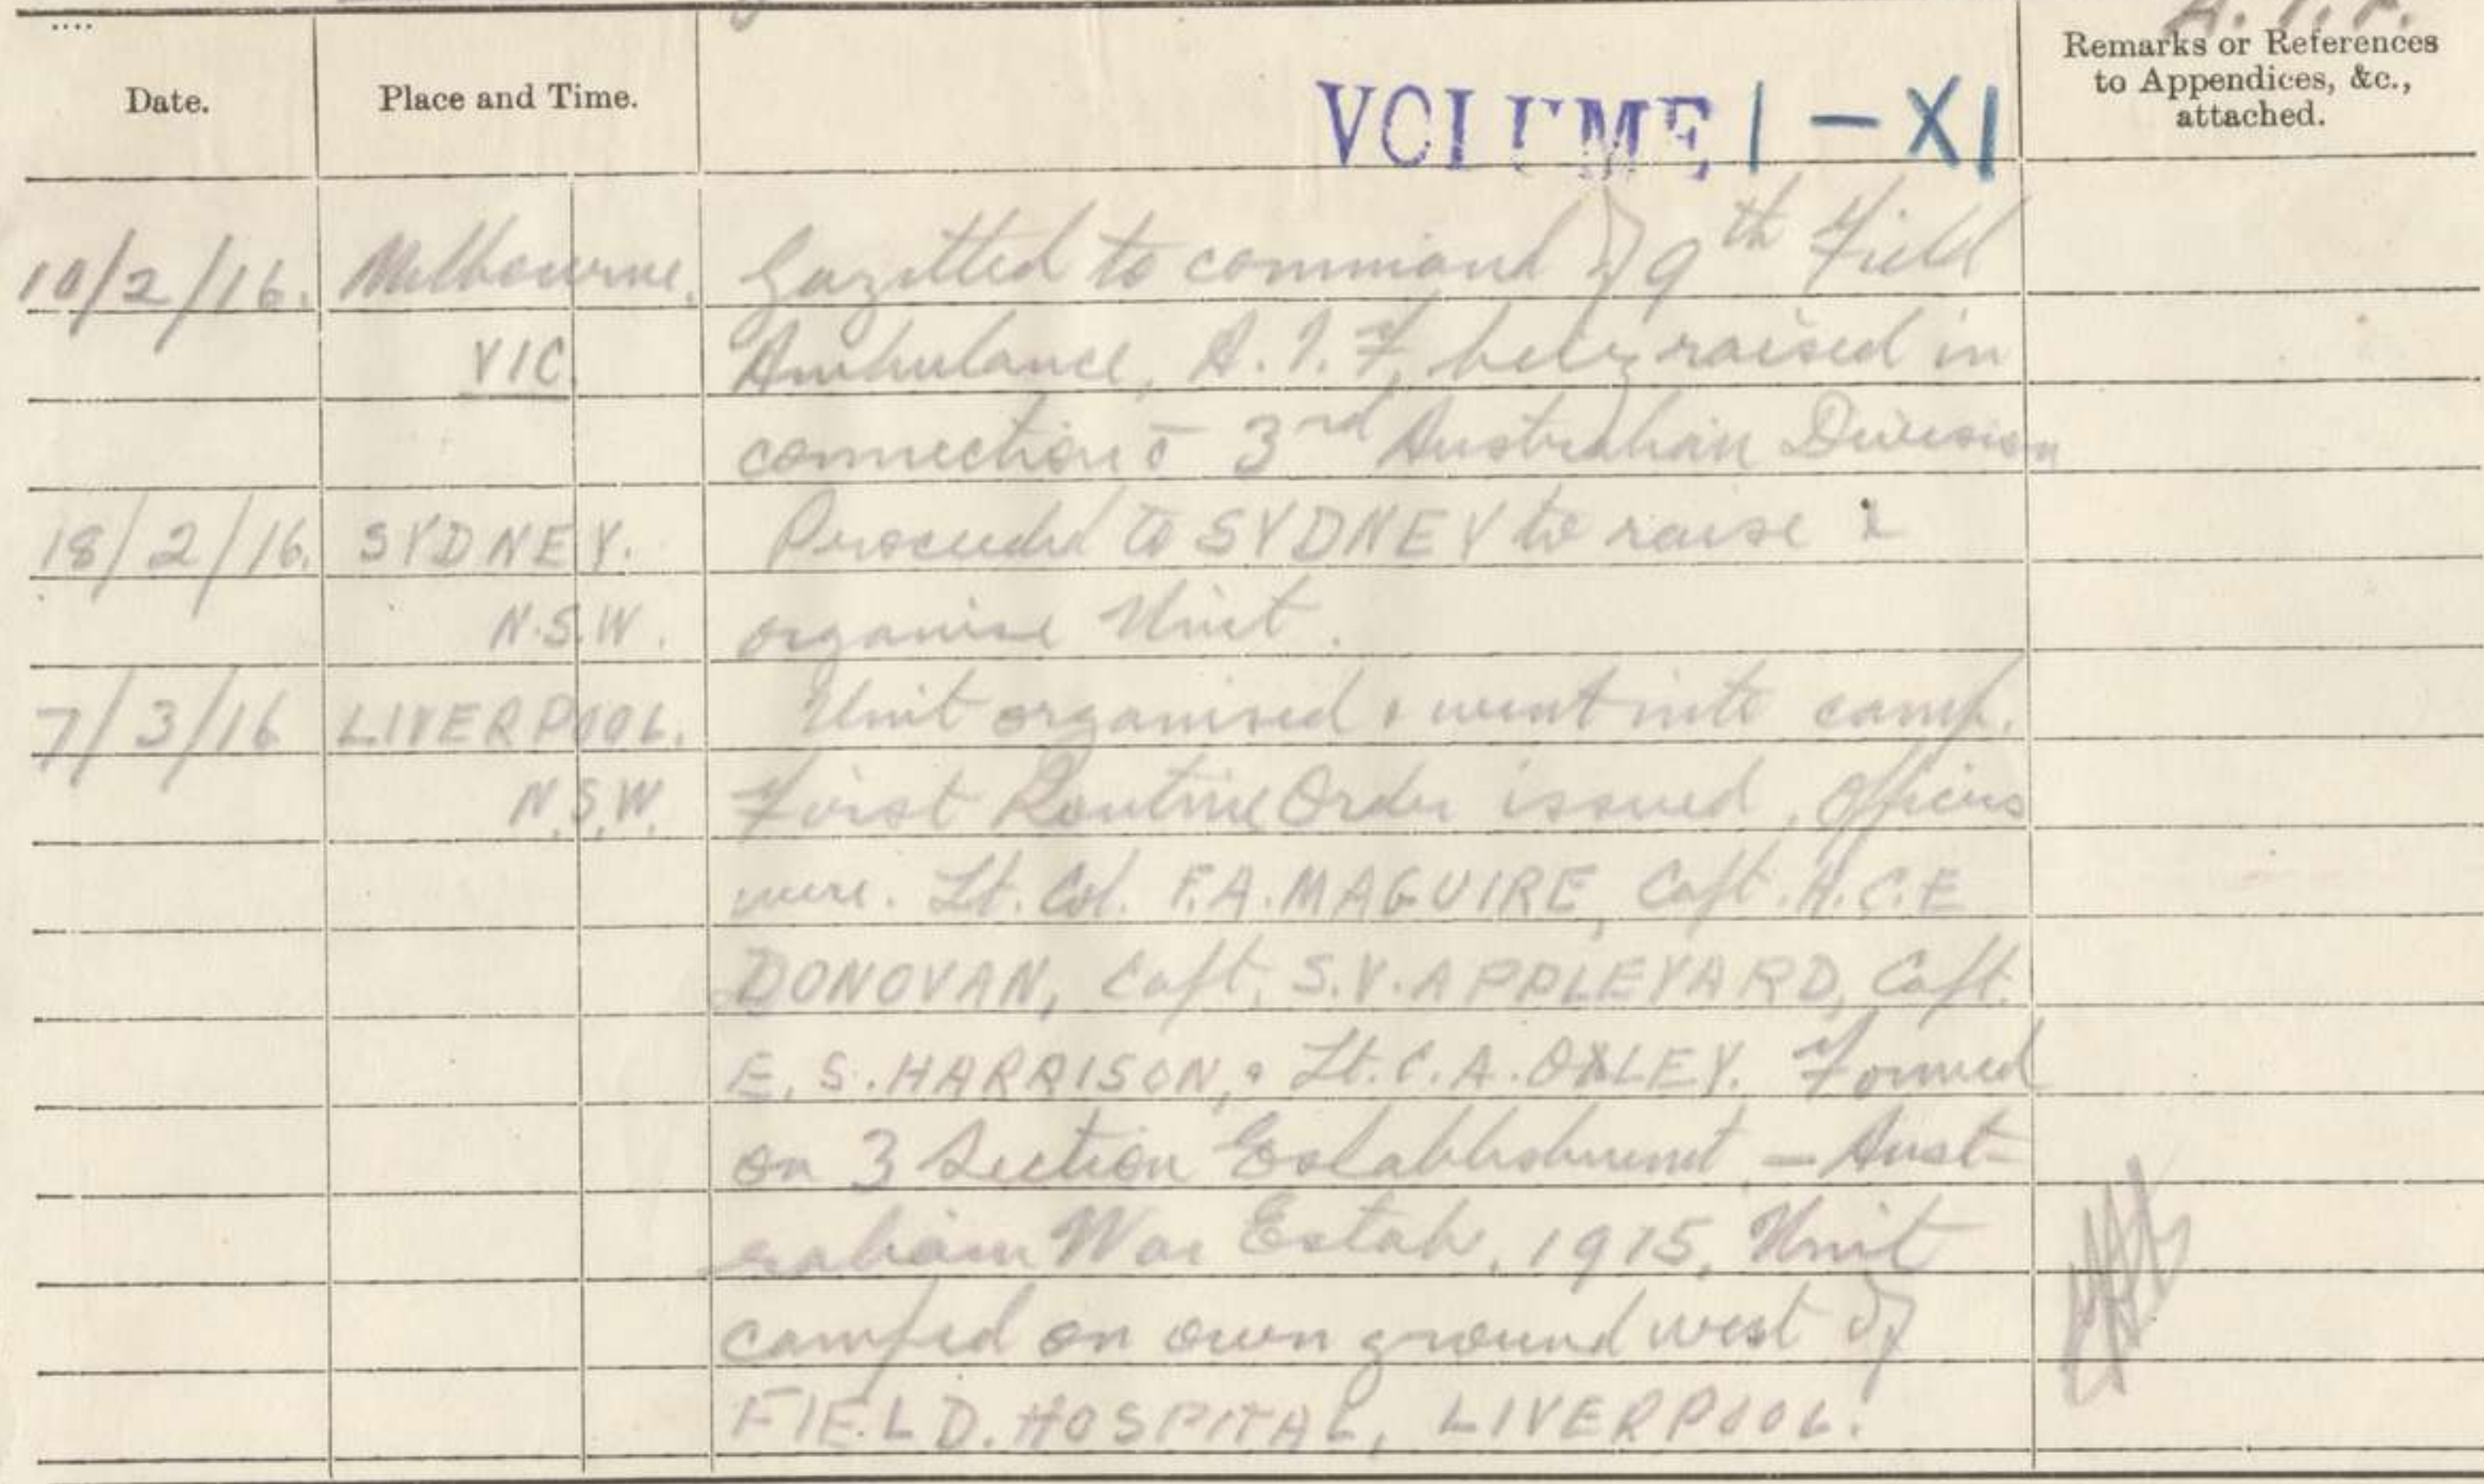 A.I.F.
Date.
Place and Time.
VOLUME I - XI
Remarks or References
to Appendices, &c.,
attached.
10/2/16. Melbourne. Gazetted to command of 9th Field
VIC Ambulance, A.I.F, being raised in
connection c̄ 3rd Australian Division
18/2/16. SYDNEY. Proceeded to SYDNEY to raise &
N.S.W. organise Unit.
7/3/16 LIVERPOOL. Unit organised & went into camp.
N.S.W. First Routine Order issued, Officers
were. Lt. Col. F.A. MAGUIRE, Capt. H.C.E
DONOVAN, Capt. S.V. APPLEYARD, Capt.
E.S. HARRISON, & Lt. C.A. OXLEY. Formed
on 3 Section Establishment - Aust-
ralian War Estab, 1915, Unit
camped on own ground west of
FIELD. HOSPITAL, LIVERPOOL.